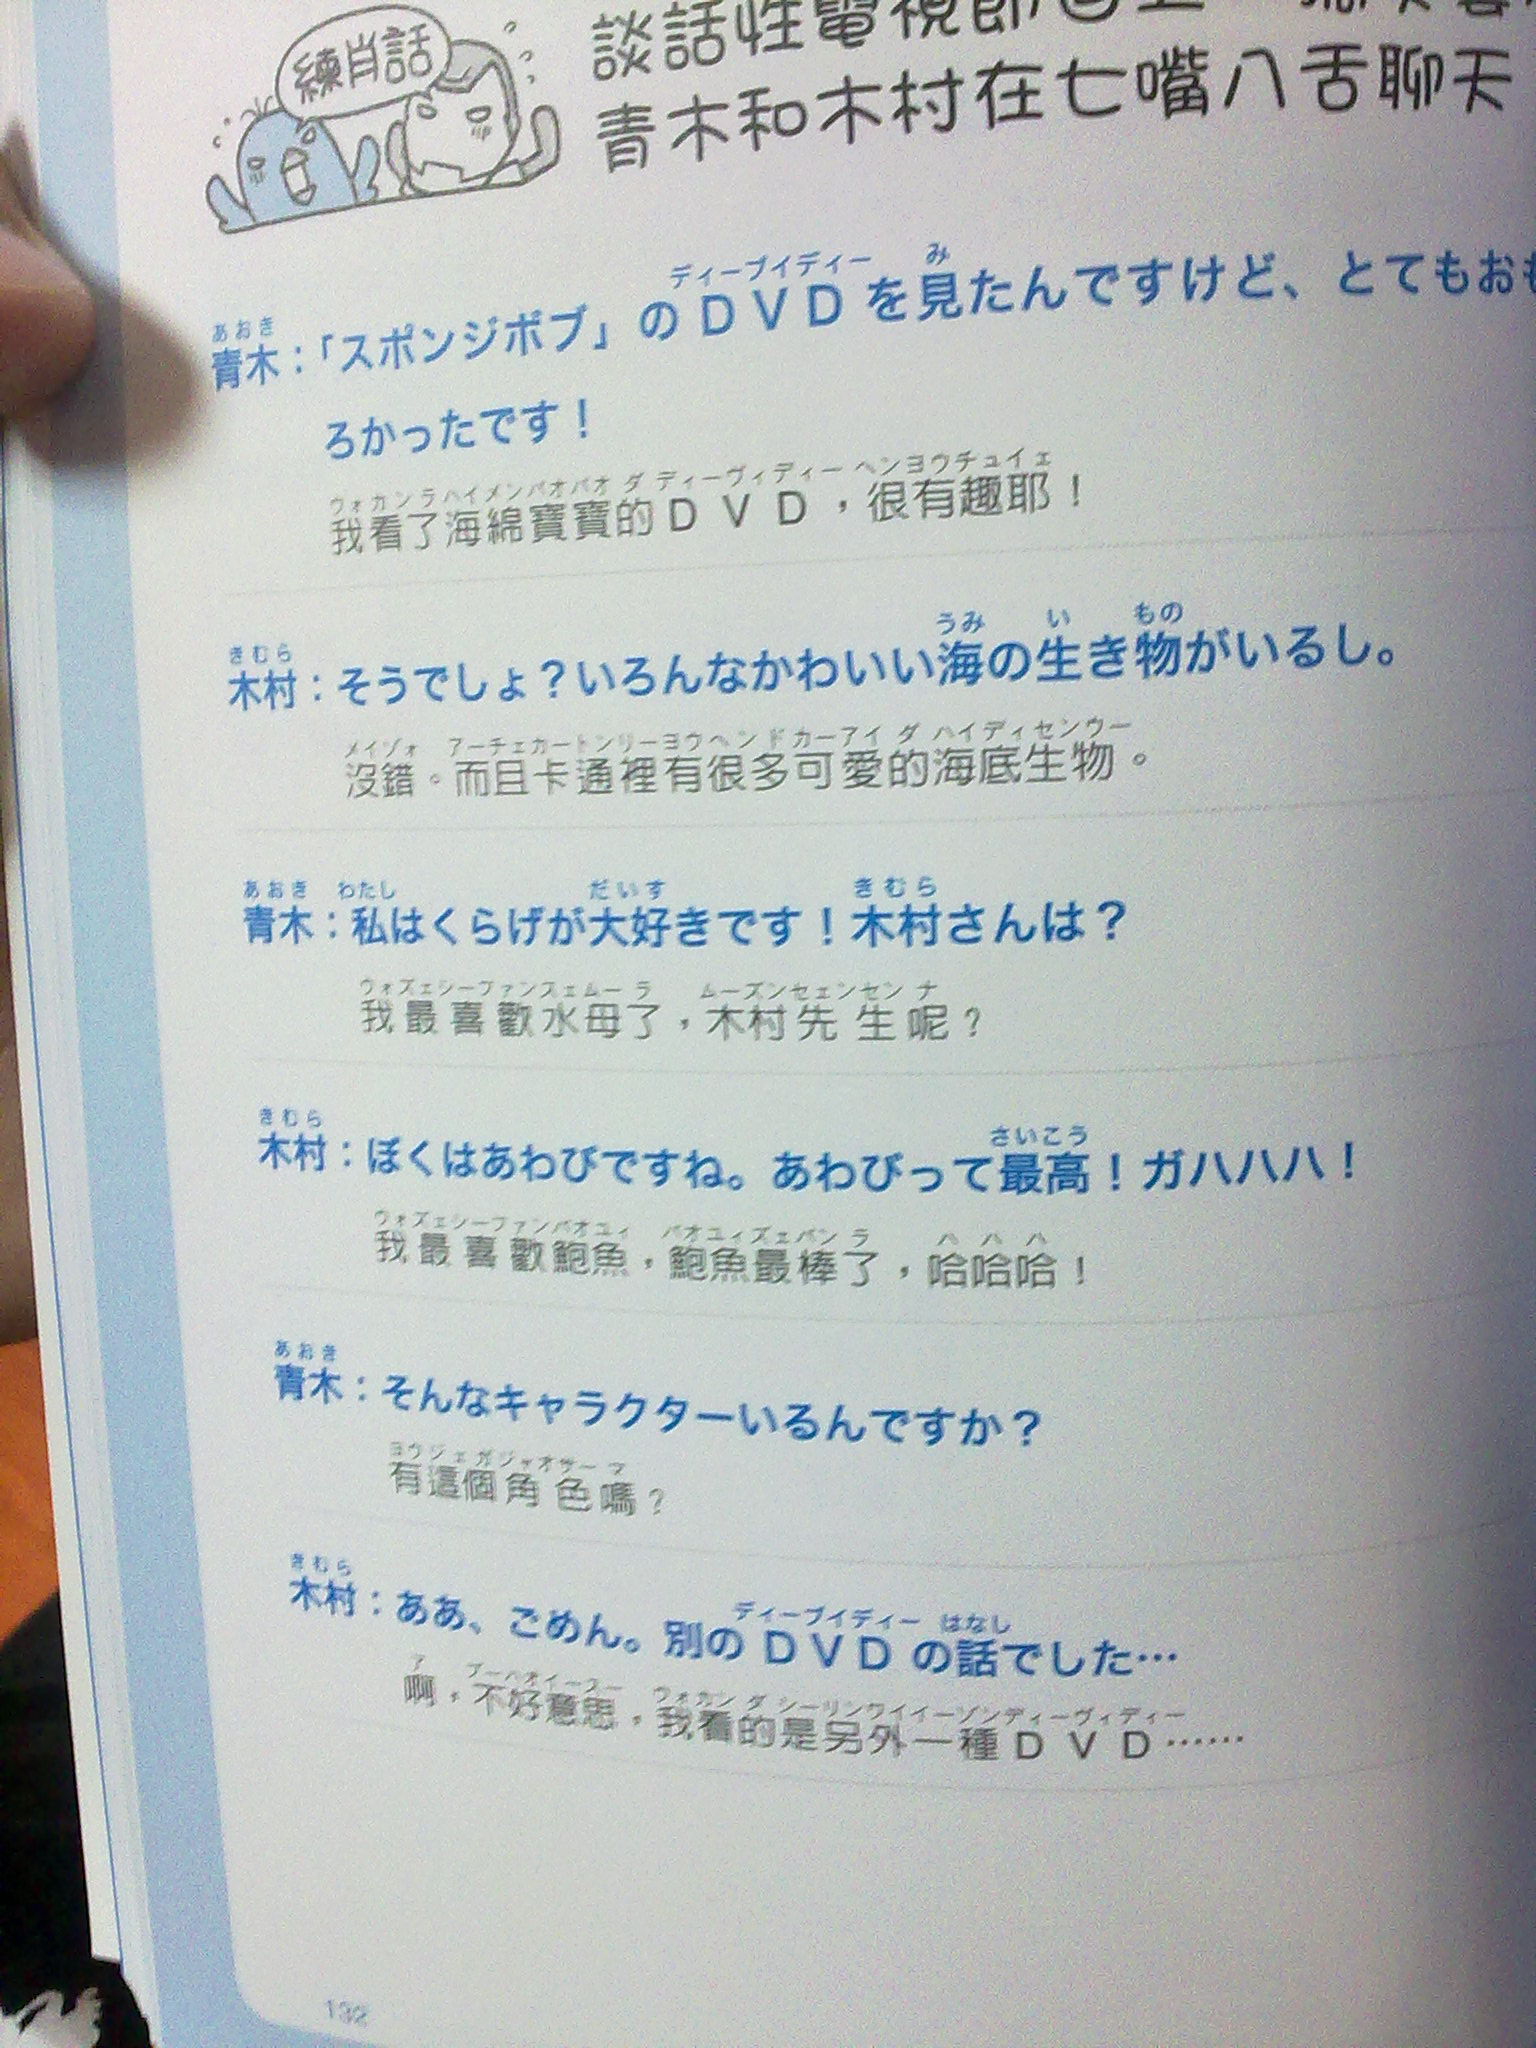 練肖話
談話性電視節目上
青木和木村在七嘴八舌聊天
ディーブイディー み
あおき
青木:「スポンジボブ」のDVDを見たんですけど、とてもおも
ろかったです!
ウォカンラハイメンバオバオ ダ ディーヴィディー ヘンヨウチュイェ
我看了海綿寶寶的DVD,很有趣耶!
きむら うみ い もの
木村:そうでしょ?いろんなかわいい海の生き物がいるし。
メイヅォ アーチェカートンリーヨウヘンドカーアイ ダ ハイディセンウー
沒錯。而且卡通裡有很多可愛的海底生物。
あおき わたし だいす きむら
青木:私はくらげが大好きです!木村さんは?
ウォズェシーファンスェムー ラ ムーズンセェンセン ナ
我最喜歡水母了,木村先生呢?
きむら さいこう
木村:ぼくはあわびですね。あわびって最高!ガハハハ!
ウォズェシーファンバオユィ バオユィズェバン ラ ハハハ
我最喜歡鮑魚,鮑魚最棒了,哈哈哈!
あおき
青木:そんなキャラクターいるんですか?
ヨウジェガジャオサー マ
有這個角色嗎?
きむら ディーブイディー はなし
木村:ああ、ごめん。別のDVDの話でした…
ア ブーハオイースー ウォカン ダ シーリンワイイーゾンディーヴィディー
啊,不好意思,我看的是另外一種DVD……
132